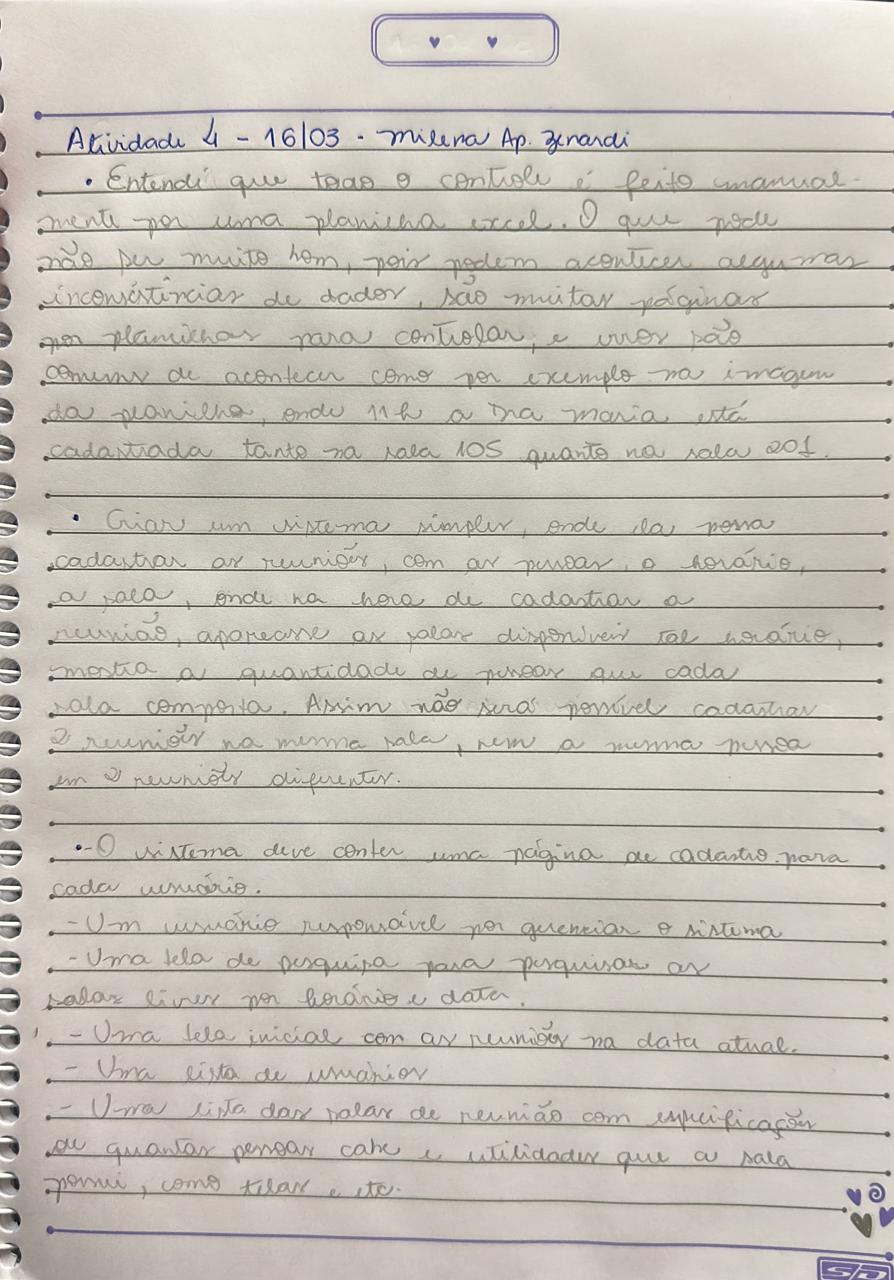 Atividade 4 - 16/03 - Milena Ap. Zenardi
• Entendi que todo o controle é feito manual-
mente por uma planilha excel. O que pode
não ser muito bom, pois podem acontecer algumas
inconsistências de dados, são muitas páginas
por planilhas para controlar, e erros são
comuns de acontecer como por exemplo na imagem
da planilha, onde 11h a Dra maria está
cadastrada tanto na sala 105 quanto na sala 201.
• Criar um sistema simples, onde ela possa
cadastrar as reuniões, com as pessoas, o horário,
a sala, onde na hora de cadastrar a
reunião, aparecesse as salas disponíveis tal horário,
mostra a quantidade de pessoas que cada
sala comporta. Assim não será possível cadastrar
2 reuniões na mesma sala, nem a mesma pessoa
em 2 reuniões diferentes.
•- O sistema deve conter uma página de cadastro para
cada usuário.
- Um usuário responsável por gerenciar o sistema
- Uma tela de pesquisa para pesquisar as
salas livres por horário e data.
- Uma tela inicial com as reuniões na data atual.
- Uma lista de usuários
- Uma lista das salas de reunião com especificações
de quantas pessoas cabe e utilidades que a sala
possui, como telas e etc.